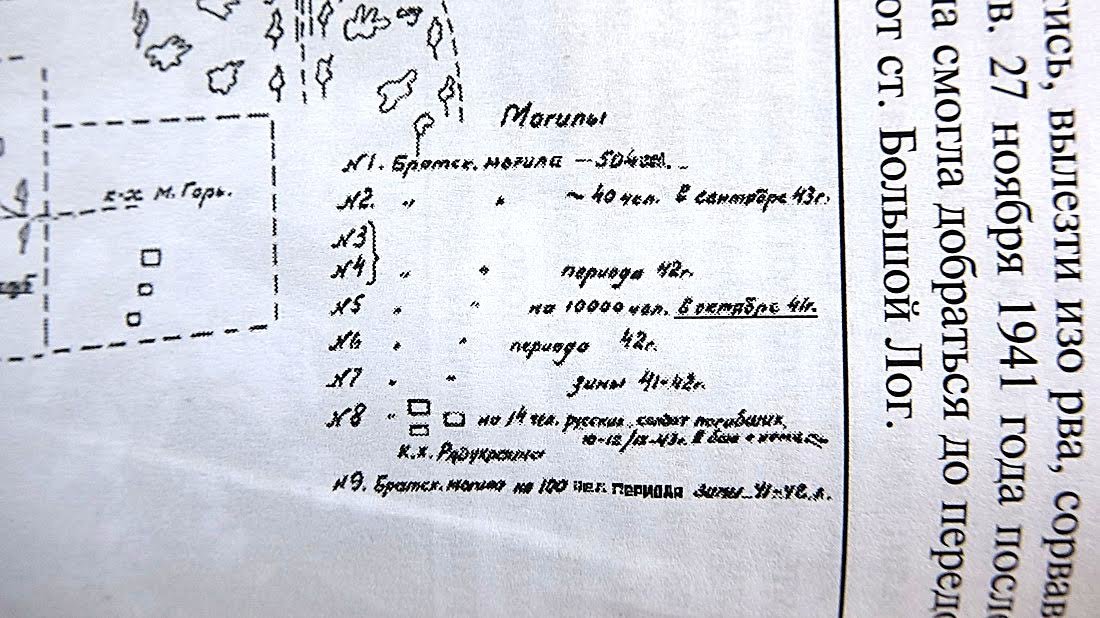 Могилы
№1. Братск. могила — 504 чел.
№2. " " ~ 40 чел. в сентябре 43г.
№3
№4 " " периода 42г.
№5 " " на 10000 чел. в октябре 41г.
№6 " " периода 42г.
№7 " " зимы 41-42г.
№8 " на 14 чел. русских солдат погибших
10-12/IX-43г. в бою с
к.х.
№9. Братск. могила на 100 чел. периода зимы 41-42 г.
к-х М. Горь.
тись, вылезти изо рва, сорвав
в. 27 ноября 1941 года посл
ла смогла добраться до перед
от ст. Большой Лог.